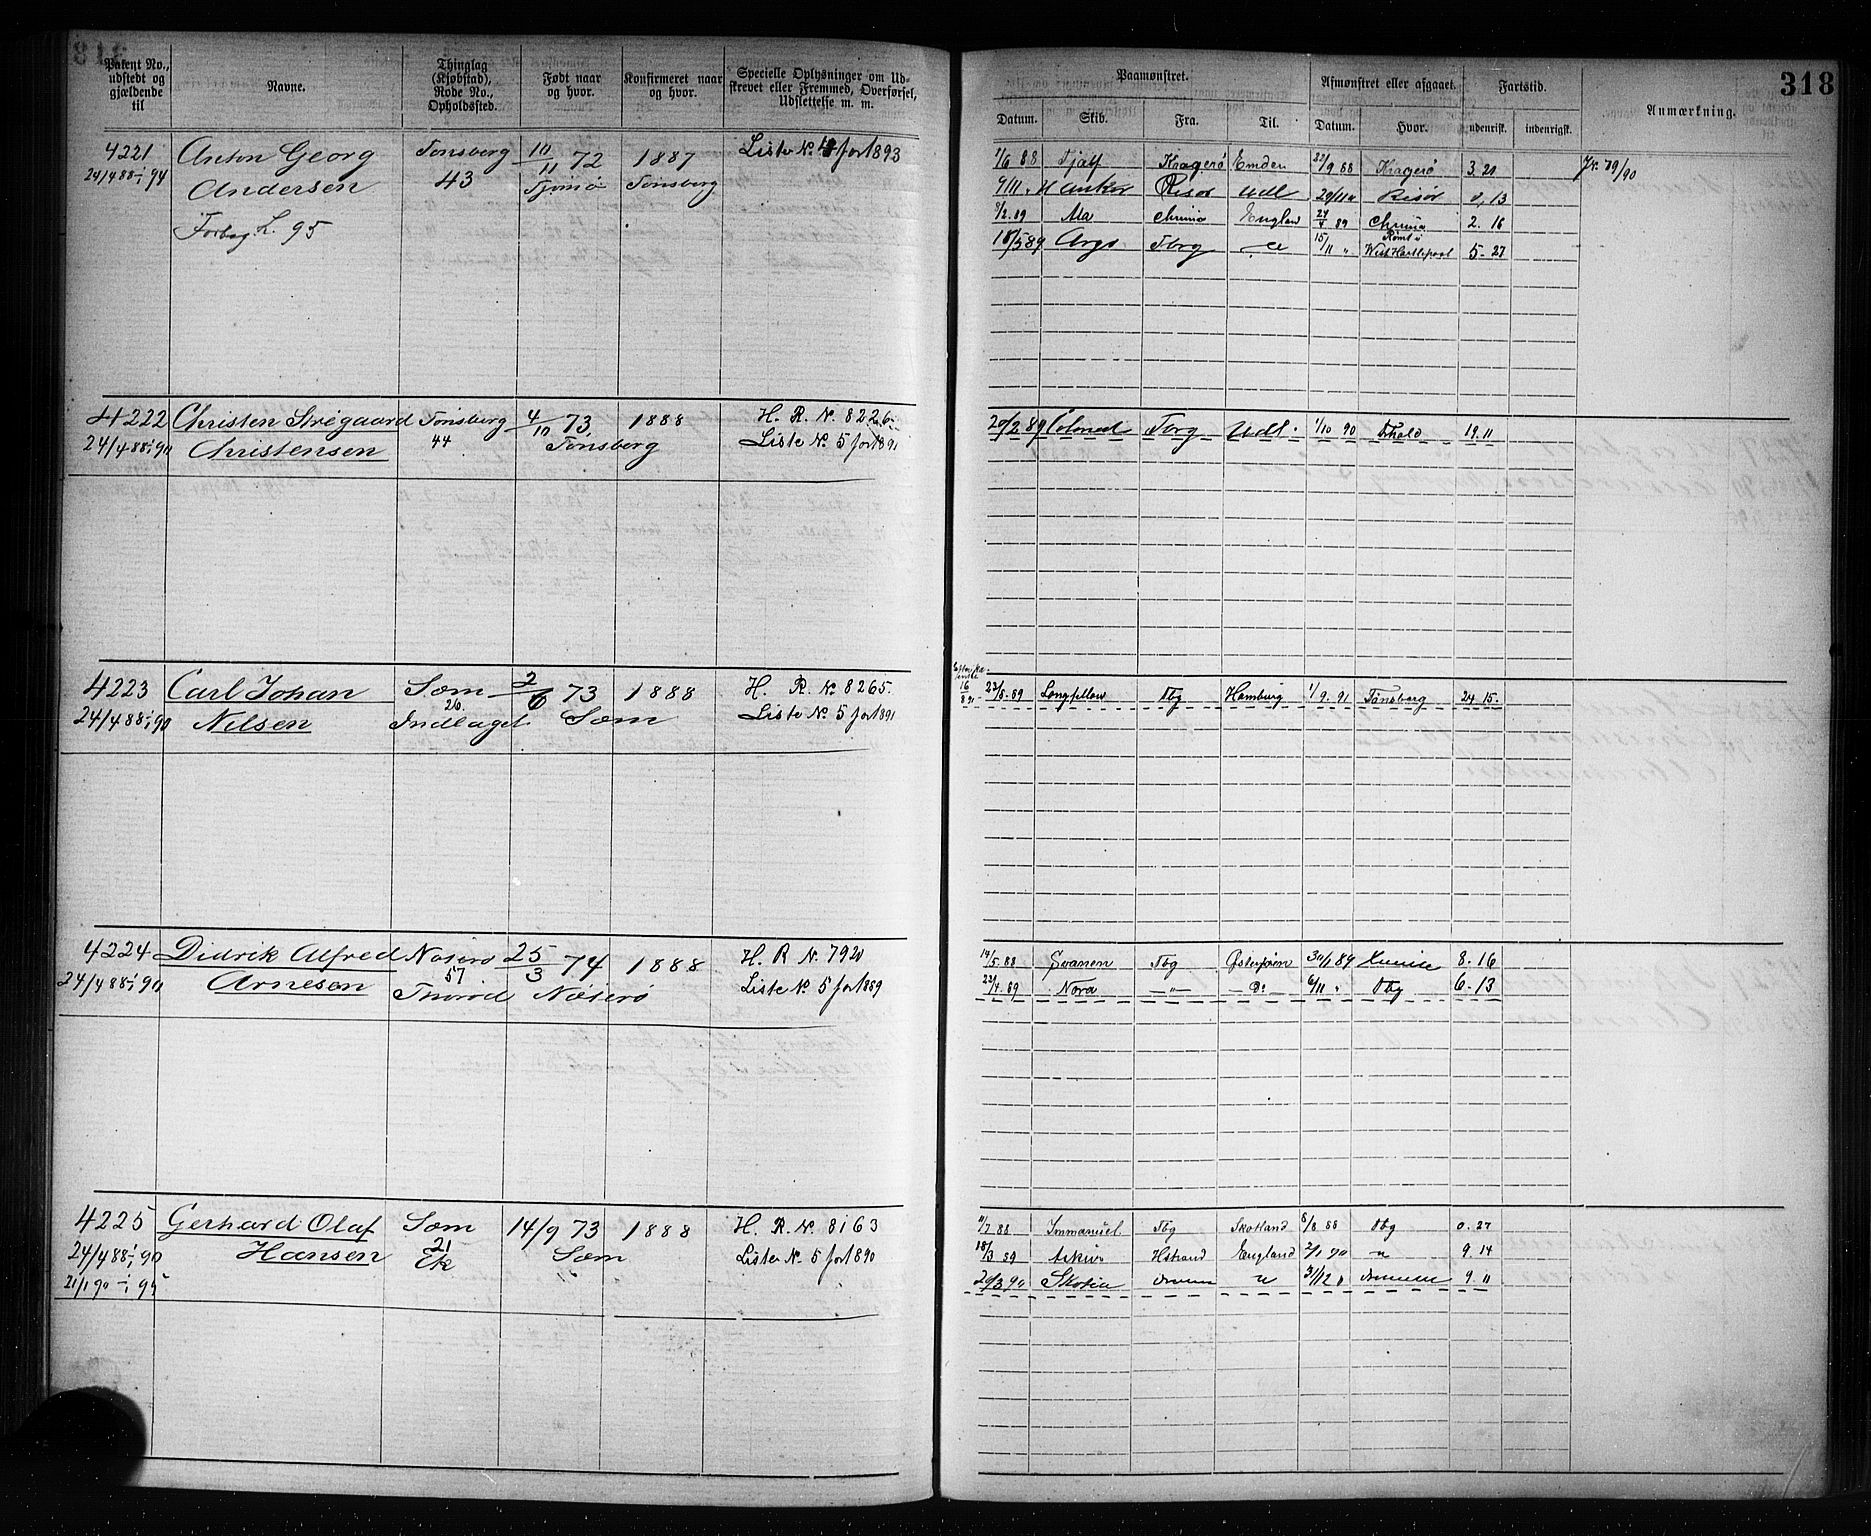 318
Patent No., udstedt og gjældende til
Navne.
Thinglag (Kjøbstad), Rode No., Opholdssted.
Født naar og hvor.
Konfirmeret naar og hvor.
Specielle Oplysninger om Udskrevet eller Fremmed, Overførsel, Udslettelse m. m.
Paamønstret.
Afmønstret eller afgaaet.
Fartstid.
Anmærkning.
Datum. Skib. Fra. Til. Datum. Hvor. udenrigsk. indenrigsk.
4221 Anton Georg Tønsberg 10/11 72 1887 Liste No 4 for 1893
24/4 88 - 94 Andersen 43 Tjømø Tønsberg
L. 95
1/6 88 Tjalf Kragerø Emden 22/9 88 Kragerø 3. 21 79/90
9/11 " Anker Risør Udl 20/11 " Risør 0, 13
3/2. 89 Ada Chrania England 24/4 89 Chrania 2. 16
18/5 89 Argo Tbrg 15/11 " West Hartlepool 5 - 27
4222 Christen Stregaard Tønsberg 4/10 73 1888 H. R. No. 8226
24/4 88 - 90 Christensen 44 Tønsberg Liste No 5 for 1891
20/2 89 Colonist Tbrg Udl. 1/10 90 Fhald 19. 11
4223 Carl Johan Sæm 2/6 73 1888 H. R. No 8265.
24/4 88 - 90 Nilsen 26 Indlaget Sæm Liste No. 5 for 1891
16/8 91
23/8. 89 Longfellow Tbg Hamburg 1/9. 91 Tønsberg 24. 15.
4224 Didrik Alfred Nøterø 25/3 74 1888 H. R No. 7920
24/4 88 - 90 Arnesen 57 Thorød Nøterø Liste No. 5 for 1889
14/5. 88 Svanen Tbg Østersjøen 30/1 89 8. 16
23/4. 89 Nora - " - Do 6/11 " Tbg 6. 13
4225 Gerhard Olaf Sæm 14/9 73 1888 H. R. No. 8163
24/4 88 - 90 Hansen 21 Ek Sæm Liste No. 5 for 1890
21/1 90 - 95
11/7. 88 Immanuel Tbg Skotland 8/8. 88 Tbg 0. 27
18/3 89 Askur Hstrand England 2/1 90 " 9. 14
20/3 90 Skotia " 31/12 " 9. 11